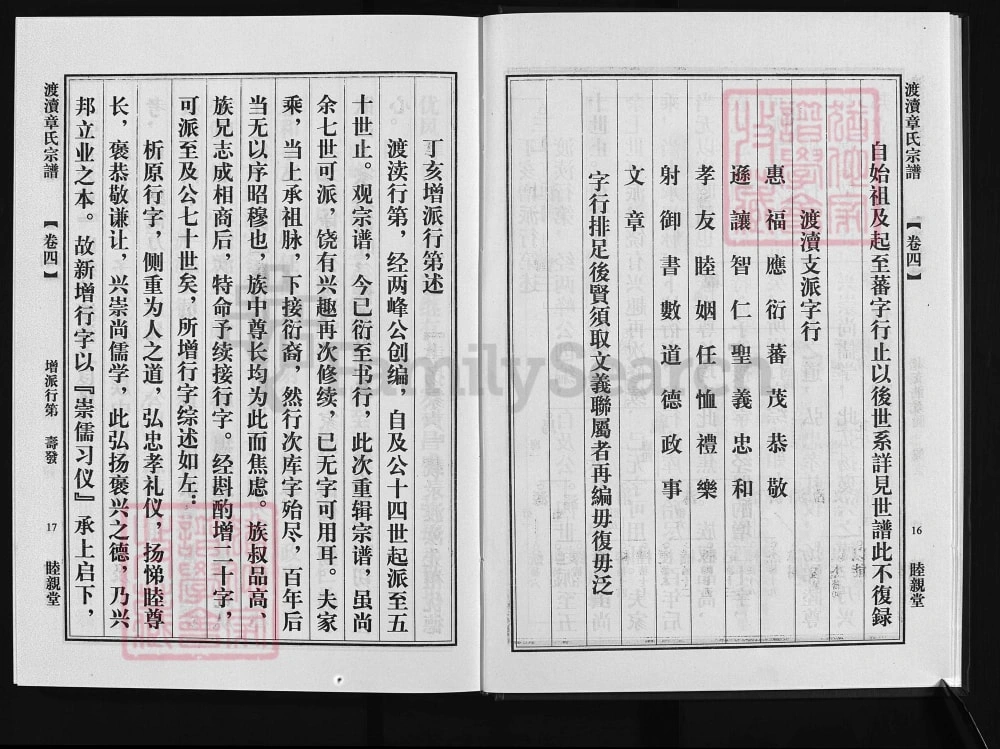 渡瀆章氏宗譜
【卷四】
16
睦親堂
自始祖及起至蕃字行止以後世系詳見世譜此不復録
渡瀆支派字行
惠福應衍蕃茂恭敬
遜讓智仁聖義忠和
孝友睦姻任恤禮樂
射御書數道德政事
文章
字行排足後賢須取文義聯屬者再編毋復毋泛
丁亥增派行第述
渡渎行第，经两峰公创编，自及公十四世起派至五
十世止。观宗谱，今已衍至书行，此次重辑宗谱，虽尚
余七世可派，饶有兴趣再次修续，已无字可用耳。夫家
乘，当上承祖脉，下接衍裔，然行次库字殆尽，百年后
当无以序昭穆也，族中尊长均为此而焦虑。族叔品高、
族兄志成相商后，特命予续接行字。经斟酌增二十字，
可派至及公七十世矣，所增行字综述如左：
析原行字，侧重为人之道，弘忠孝礼仪，扬悌睦尊
长，褒恭敬谦让，兴崇尚儒学，此弘扬褒兴之德，乃兴
邦立业之本。故新增行字以『崇儒习仪』承上启下，
渡瀆章氏宗譜
【卷四】
增派行第 壽發
17
睦親堂
FamilySearch